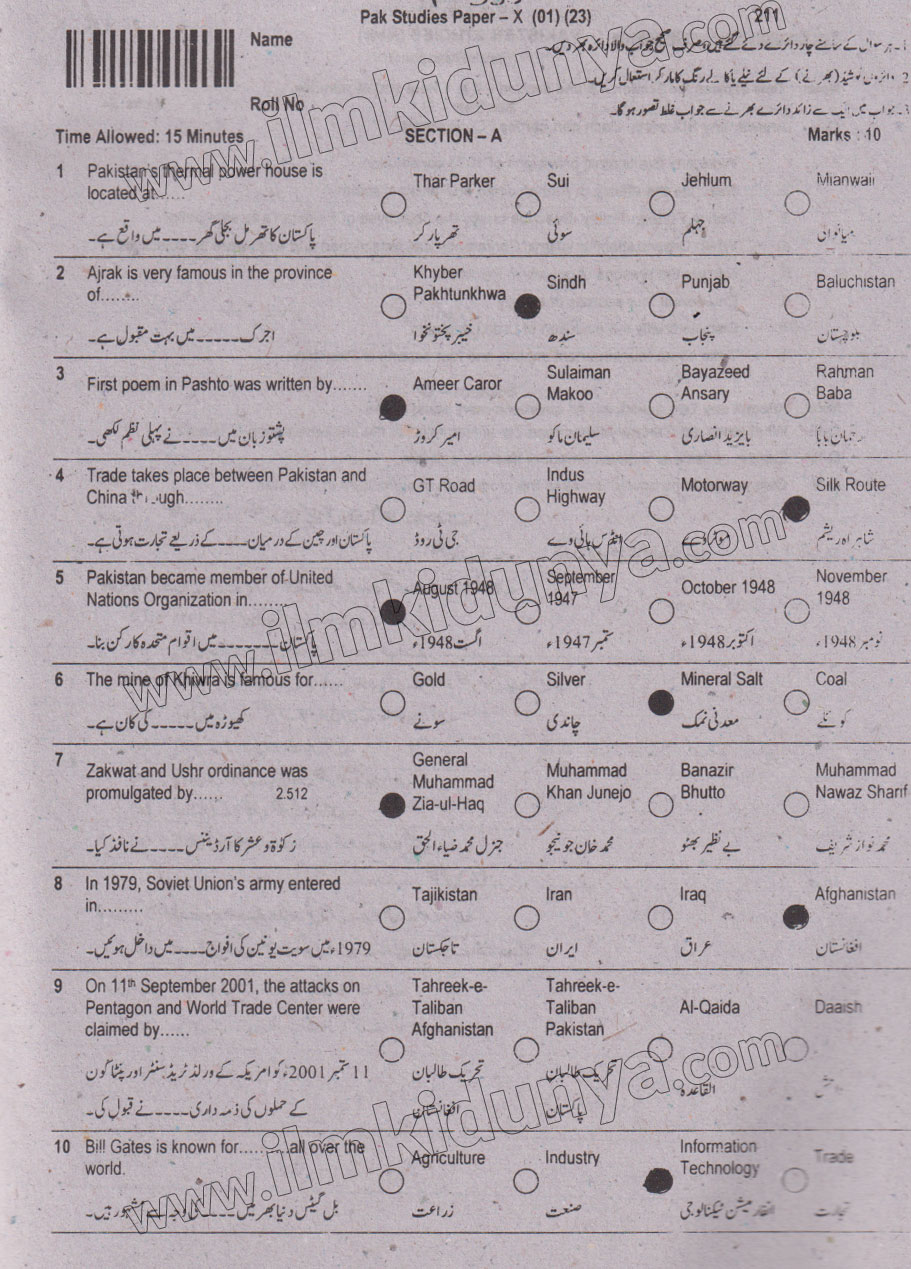 Pak Studies Paper – X (01) (23)
211
Name
Roll No
1۔ ہر سوال کے سامنے چار دائرے دئے گئے ہیں صرف صحیح جواب والا دائرہ بھر دیں۔
2۔ دائروں کو شیڈ (بھرنے) کے لئے نیلے یا کالے رنگ کا مارکر استعمال کریں۔
3۔ جواب میں ایک سے زائد دائرے بھرنے سے جواب غلط تصور ہوگا۔
Time Allowed: 15 Minutes SECTION – A Marks : 10
1 Pakistan's thermal power house is
located at......
Thar Parker Sui Jehlum Mianwali
پاکستان کا تھرمل بجلی گھر۔۔۔۔میں واقع ہے۔ تھرپارکر سوئی جہلم میانوالی
2 Ajrak is very famous in the province
of........
Khyber
Pakhtunkhwa
Sindh Punjab Baluchistan
اجرک۔۔۔۔۔میں بہت مقبول ہے۔ خیبر پختونخوا سندھ پنجاب بلوچستان
3 First poem in Pashto was written by.......
Ameer Caror
Sulaiman
Makoo
Bayazeed
Ansary
Rahman
Baba
پشتو زبان میں۔۔۔۔نے پہلی نظم لکھی۔ امیر کروڑ سلیمان ماکو بایزید انصاری رحمان بابا
4 Trade takes place between Pakistan and
China through........
GT Road
Indus
Highway
Motorway Silk Route
پاکستان اور چین کے درمیان۔۔۔۔کے ذریعے تجارت ہوتی ہے۔ جی ٹی روڈ انڈس ہائی وے موٹروے شاہراہ ریشم
5 Pakistan became member of United
Nations Organization in........
August 1948
September
1947
October 1948
November
1948
پاکستان۔۔۔۔۔۔۔میں اقوام متحدہ کا رکن بنا۔ اگست 1948ء ستمبر 1947ء اکتوبر 1948ء نومبر 1948ء
6 The mine of Khiwra is famous for......
Gold Silver Mineral Salt Coal
کھیوڑہ میں۔۔۔۔۔کی کان ہے۔ سونے چاندی معدنی نمک کوئلے
7 Zakwat and Ushr ordinance was
promulgated by...... 2.512
General
Muhammad
Zia-ul-Haq
Muhammad
Khan Junejo
Banazir
Bhutto
Muhammad
Nawaz Sharif
زکوٰۃ و عشر کا آرڈیننس۔۔۔۔۔نے نافذ کیا۔ جنرل محمد ضیاء الحق محمد خان جونیجو بے نظیر بھٹو محمد نواز شریف
8 In 1979, Soviet Union's army entered
in.........
Tajikistan Iran Iraq Afghanistan
1979ء میں سویت یونین کی افواج۔۔۔۔میں داخل ہوئیں۔ تاجکستان ایران عراق افغانستان
9 On 11th September 2001, the attacks on
Pentagon and World Trade Center were
claimed by......
Tahreek-e-
Taliban
Afghanistan
Tahreek-e-
Taliban
Pakistan
Al-Qaida Daaish
11 ستمبر 2001ء کو امریکہ کے ورلڈ ٹریڈ سنٹر اور پنٹاگون
کے حملوں کی ذمہ داری۔۔۔۔نے قبول کی۔
تحریک طالبان
افغانستان
تحریک طالبان
پاکستان
القاعدہ
10 Bill Gates is known for...........all over the
world.
Agriculture Industry
Information
Technology
Trade
بل گیٹس دنیا بھر میں۔۔۔۔کی وجہ سے مشہور ہیں۔ زراعت صنعت انفارمیشن ٹیکنالوجی تجارت
www.ilmkidunya.com
www.ilmkidunya.com
www.ilmkidunya.com
www.ilmkidunya.com